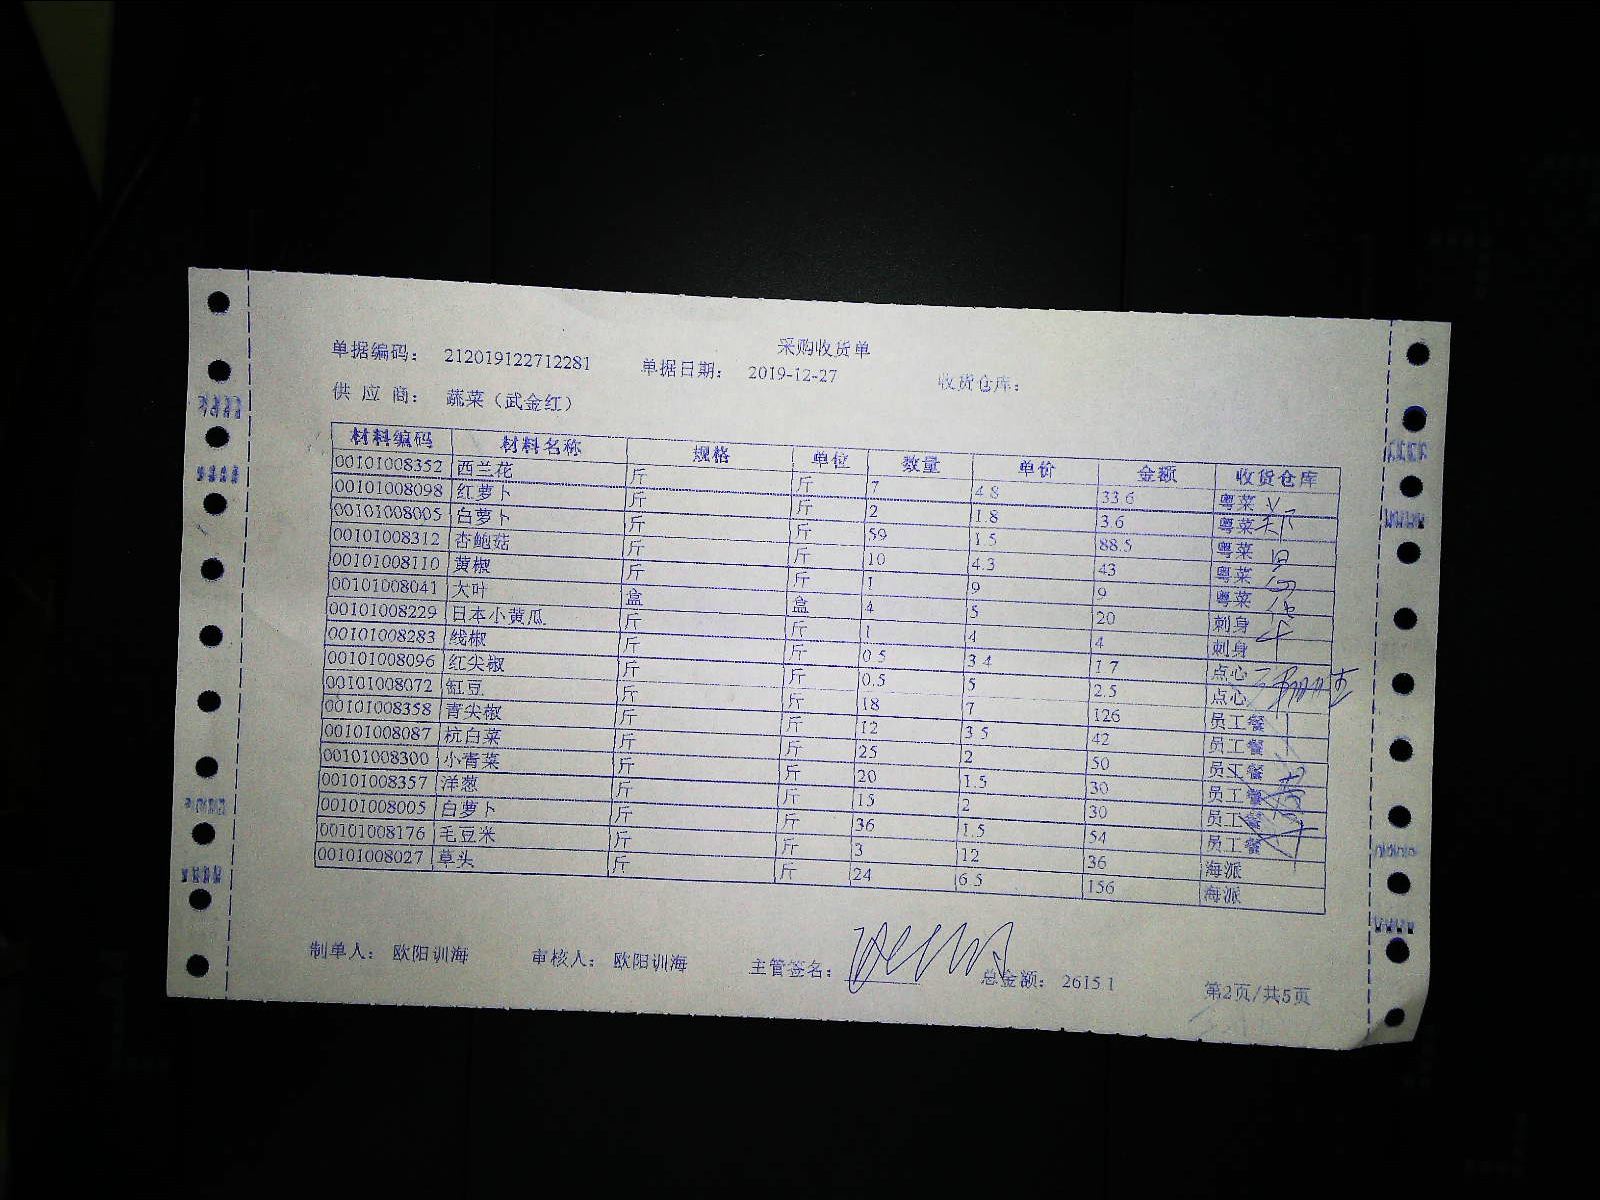 采购收货单
单据编码： 212019122712281 单据日期： 2019-12-27 收货仓库：
供 应 商： 蔬菜（武金红）
材料编码 材料名称 规格 单位 数量 单价 金额 收货仓库
00101008352 西兰花 斤 斤 7 4.8 33.6 粤菜
00101008098 红萝卜 斤 斤 2 1.8 3.6 粤菜
00101008005 白萝卜 斤 斤 59 1.5 88.5 粤菜
00101008312 杏鲍菇 斤 斤 10 4.3 43 粤菜
00101008110 黄椒 斤 斤 1 9 9 粤菜
00101008041 大叶 盒 盒 4 5 20 刺身
00101008229 日本小黄瓜 斤 斤 1 4 4 刺身
00101008283 线椒 斤 斤 0.5 3.4 1.7 点心
00101008096 红尖椒 斤 斤 0.5 5 2.5 点心
00101008072 缸豆 斤 斤 18 7 126 员工餐
00101008358 青尖椒 斤 斤 12 3.5 42 员工餐
00101008087 杭白菜 斤 斤 25 2 50 员工餐
00101008300 小青菜 斤 斤 20 1.5 30 员工餐
00101008357 洋葱 斤 斤 15 2 30 员工餐
00101008005 白萝卜 斤 斤 36 1.5 54 员工餐
00101008176 毛豆米 斤 斤 3 12 36 海派
00101008027 草头 斤 斤 24 6.5 156 海派
制单人： 欧阳训海 审核人： 欧阳训海 主管签名： 总金额： 2615.1 第2页/共5页